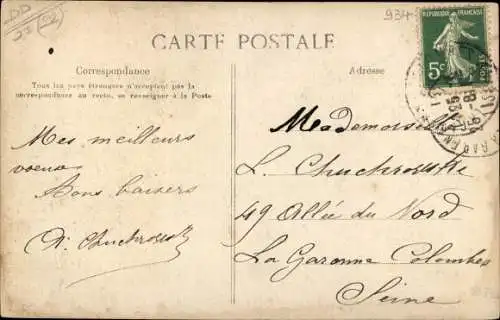 934
RÉPUBLIQUE FRANÇAISE
5c
CARTE POSTALE
Correspondance
Tous les pays étrangers n'acceptent pas la
correspondance au recto, se renseigner à la Poste
Adresse
Mes meilleurs
voeux
Bons baisers
Mademoiselle
L.
49 Allée du Nord
La Garenne Colombes
Seine